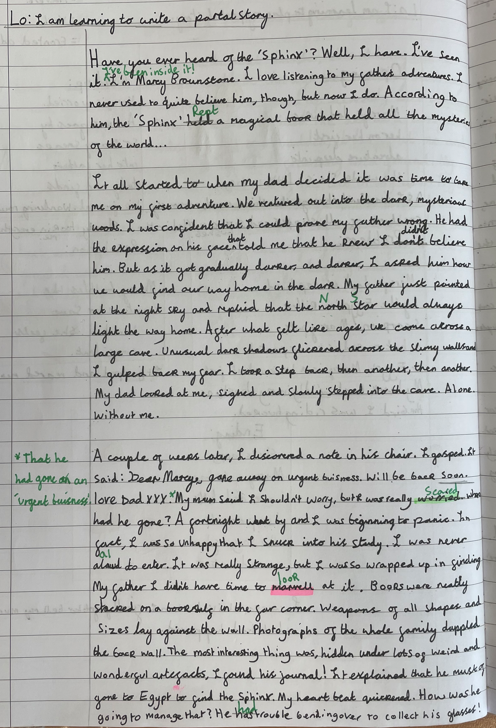 Lo: I am learning to write a portal story.
Have you ever heard of the 'Sphinx'? Well, I have. I've seen
I've been inside it!
it. I'm Marcy Brownstone. I love listening to my father adventures. I
never used to quite believe him, though, but now I do. According to
Kept
him, the 'Sphinx' held a magical book that held all the mysteries
of the world...
It all started to when my dad decided it was time to take
me on my first adventure. We ventured out into the dark, mysterious
woods. I was confident that I could prove my father wrong. He had
that didn't
the expression on his face told me that he knew I don't believe
him. But as it got gradually darker, and darker, I asked him how
we would find our way home in the dark. My father just pointed
N S
at the night sky and replied that the north star would always
light the way home. After what felt like ages, we came across a
large cave. Unusual dark shadows flickered across the slimy walls and
I gulped back my fear. I took a step back, then another, then another.
My dad looked at me, sighed and slowly stepped into the cave. Alone.
Without me.
A couple of weeks later, I discovered a note in his chair. I gasped. It
said: Dear Marcys, gone away on urgent buisness. Will be back soon.
love Dad XXX * My mum said I shouldn't worry, but I was really worried. Where
Scared
* That he
had gone on an
urgent buisness
had he gone? A fortnight went by and I was beginning to panic. In
fact, I was so unhappy that I snuck into his study. I was never
al
aloud do enter. It was really strange, but I was so wrapped up in finding
look
My father I didit have time to marvell at it. Books were neatly
stacked on a bookshelf in the far corner. Weapons of all shapes and
sizes lay against the wall. Photographs of the whole family dappled
the back wall. The most interesting thing was, hidden under lots of weird and
wonderful artefacts, I found his journal! It explained that he must of
gone to Egypt to find the Sphinx. My heart beat quickened. How was he
had
going to manage that? He has trouble bending over to collect his glasses!